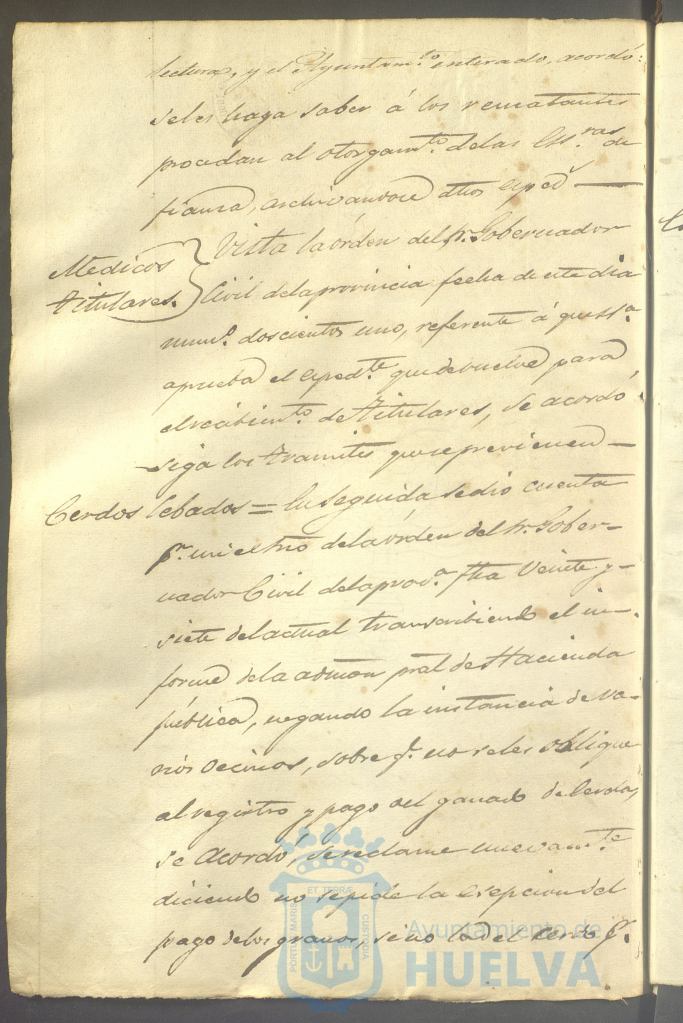 lectura, y el Ayuntam.to enterado, acordó:
seles haga saber á los rematantes
procedan al otorgam.to delas Ess.ras de
fianza, archivandose dhos esped.s
Medicos
titulares.
Vista la órden del Sr. Gobernador
Civil dela provincia fecha de este dia
num.o doscientos uno, referente á que S.S.a
aprueba el esped.te que debuelve para
el recibim.to de titulares, se acordó,
siga los tramites que se previenen
Cerdos Cebados = En seguida se dió cuenta
p.r mi el Srio dela órden del Sr. Gober-
nador Civil dela prov.a fha Veinte y
siete del actual transcribiendo el in-
forme dela admon pral de Hacienda
pública, negando la instancia de va-
rios vecinos, sobre q.e no se les obligue
al registro y pago del ganado de Cerdas,
se Acordó, se reclame nuevam.te
diciendo no se pide la esepcion del
pago de los granos, sino la del Cerdo q.e
PORTUS MARIS
ET TERRÆ
CUSTODIA
Ayuntamiento de
HUELVA